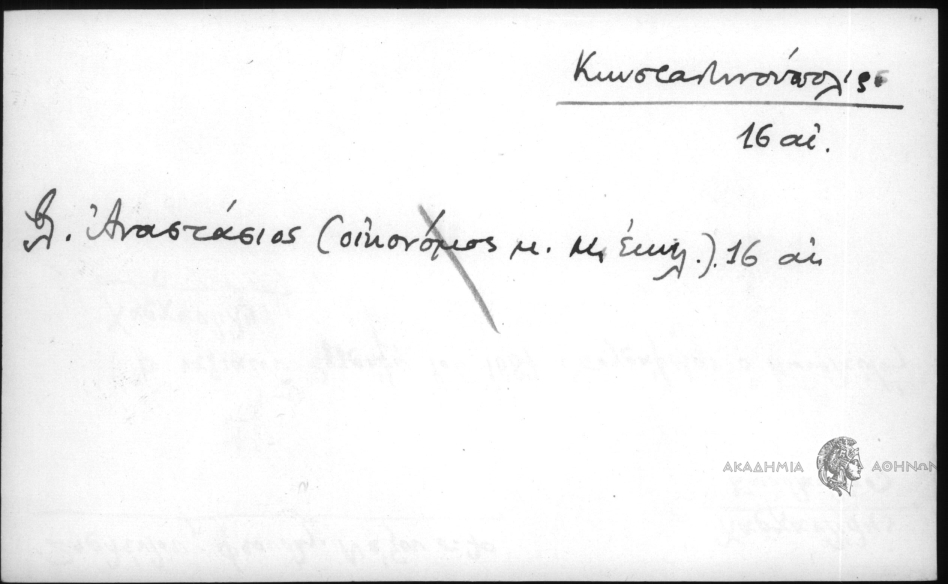 Κωνσταντινούπολις
16 αἰ.
βλ. Ἀναστάσιος (οἰκονόμος μ. Μ. Ἐκκλ.). 16 αἰ.
ΑΚΑΔΗΜΙΑ ΑΘΗΝΩΝ